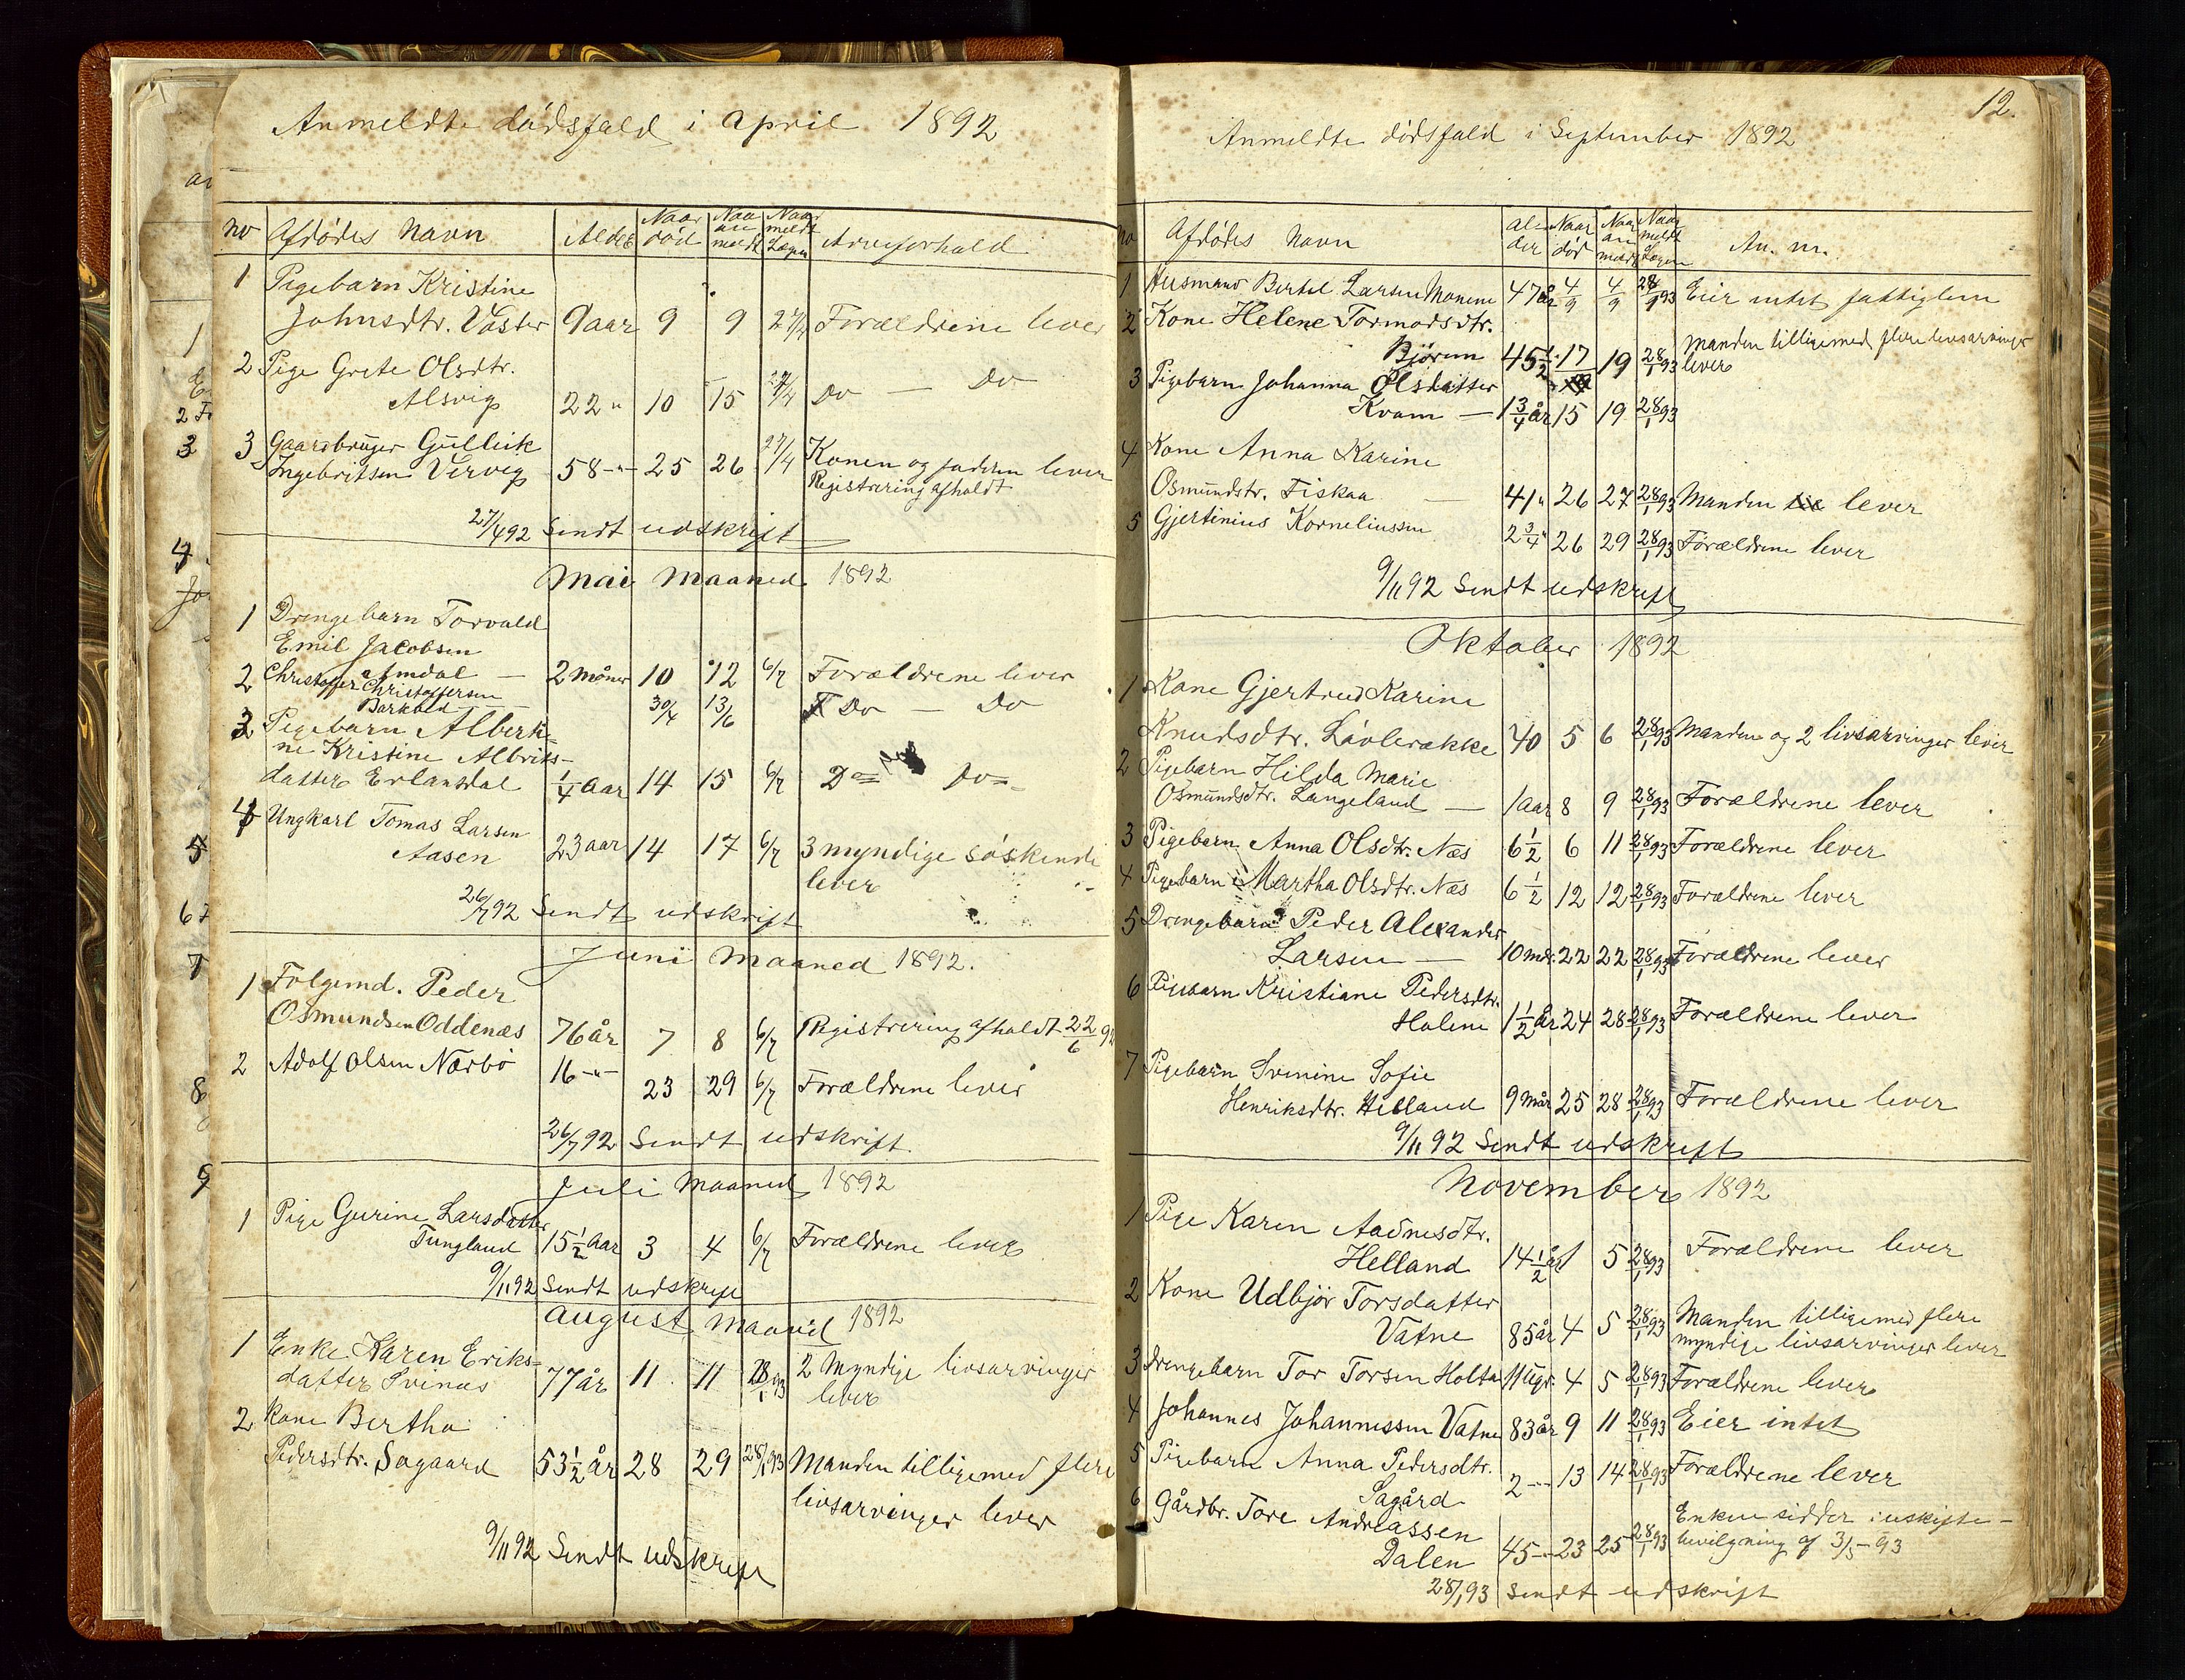 Anmeldte dødsfald i April 1892
No Afdødes Navn Alder Naar død Naar anmeldt Naar meldt Lagm Arveforhold
1 Pigebarn Kristine
Johnsdtr. Vaster 9 aar 9 9 27/4 Forældrene lever
2 Pige Grete Olsdtr.
Alsvig 22 " 10 15 27/4 Do — Do
3 Gaardbruger Gullick
Ingebritsen Vervig 58 -"- 25 26 27/4 Konen og faderen lever
Registrering afholdt
27/4 92 Sendt udskrift
Mai Maaned 1892
1 Drengebarn Torvald
Emil Jacobsen
Amdal — 2 Måner 10 12 6/7 Forældrene lever
2 Christoffer Christoffersen
Barkved 30/4 13/6 Do — Do
3 Pigebarn Alberti-
ne Kristine Albriks-
datter Erlandsdal 1/4 Aar 14 15 6/7 Do Do
4 Ungkarl Tomas Larsen
Aasen 23 aar 14 17 6/7 3 myndige søskende
lever
26/7 92 Sendt udskrift
Juni Maaned 1892.
1 Følgemd. Peder
Osmundsen Oddenæs 76 år 7 8 6/7 Registrering afholdt 22/6 92
2 Adolf Olsen Nærbø 16 -"- 23 29 6/7 Forældrene lever
26/7 92 Sendt udskrift.
Juli Maaned 1892
1 Pige Gurine Larsdatter
Tungland 15 1/2 Aar 3 4 6/7 Forældrene lever
9/11 92 Sendt udskrift
August Maaned 1892
1 Enke Karen Eriks-
datter Svinæs 77 år 11 11 28/1 93 2 Myndige livsarvinger
lever
2 Kone Bertha
Pedersdtr. Sagaard 53 1/2 år 28 29 28/1 93 Manden tilligemed flere
livsarvinger lever
9/11 92 Sendt udskrift
12.
Anmeldte dødsfald i September 1892
No Afdødes Navn Alder Naar død Naar anmeldt Naar meldt Lagm An. m.
1 Husmand Bertel Larsen Monene 47 år 4/9 4/9 28/1 93 Eier intet fattiglem
2 Kone Helene Tormodsdtr.
Bjørum 45 1/2 17 19 28/1 93 Manden tilligemed flere livsarvinger
lever
3 Pigebarn Johanna Olsdatter
Kvam — 1 3/4 år 15 19 28/1 93
4 Kone Anna Karine
Osmundstr. Fiskaa — 41 " 26 27 28/1 93 Manden lever
5 Gjertinius Korneliussen 2 3/4 " 26 29 28/1 93 Forældrene lever
9/11 92 Sendt udskrift
Oktober 1892
1 Kone Gjertrud Karine
Knudsdtr. Låvlerække 40 5 6 28/1 93 Manden og 2 livsarvinger lever
2 Pigebarn Hilda Marie
Osmundsdtr. Langeland — 1 aar 8 9 28/1 93 Forældrene lever
3 Pigebarn Anna Olsdtr. Næs 6 1/2 6 11 28/1 93 Forældrene lever
4 Pigebarn Martha Olsdtr. Næs 6 1/2 12 12 28/1 93 Forældrene lever
5 Drengebarn Peder Alexander
Larsen — 10 mdr. 22 22 28/1 93 Forældrene lever
6 Pigebarn Kristiane Pedersdtr.
Holene 1 1/2 år 24 28 28/1 93 Forældrene lever
7 Pigebarn Svenine Sofie
Henriksdtr. Helland 9 Mår 25 28 28/1 93 Forældrene lever
9/11 92 Sendt udskrift
November 1892
1 Pige Karen Aadnesdtr.
Helland 14 1/2 år 1 5 28/1 93 Forældrene lever
2 Kone Udbjør Torsdatter
Vatne 85 år 4 5 28/1 93 Manden tilligemed flere
myndige livsarvinger lever
3 Drengebarn Tor Torsen Holta 11 Ugr. 4 5 28/1 93 Forældrene lever
4 Johannes Johannessen Vatne 83 år 9 11 28/1 93 Eier intet
5 Pigebarn Anna Pedersdtr.
Sagård 2 -"- 13 14 28/1 93 Forældrene lever
6 Gårdbr. Tore Andreassen
Dalen 45 -"- 23 25 28/1 93 Enken sidder i uskifte-
bevilgning af 3/5-93
28/1 93 Sendt udskrift